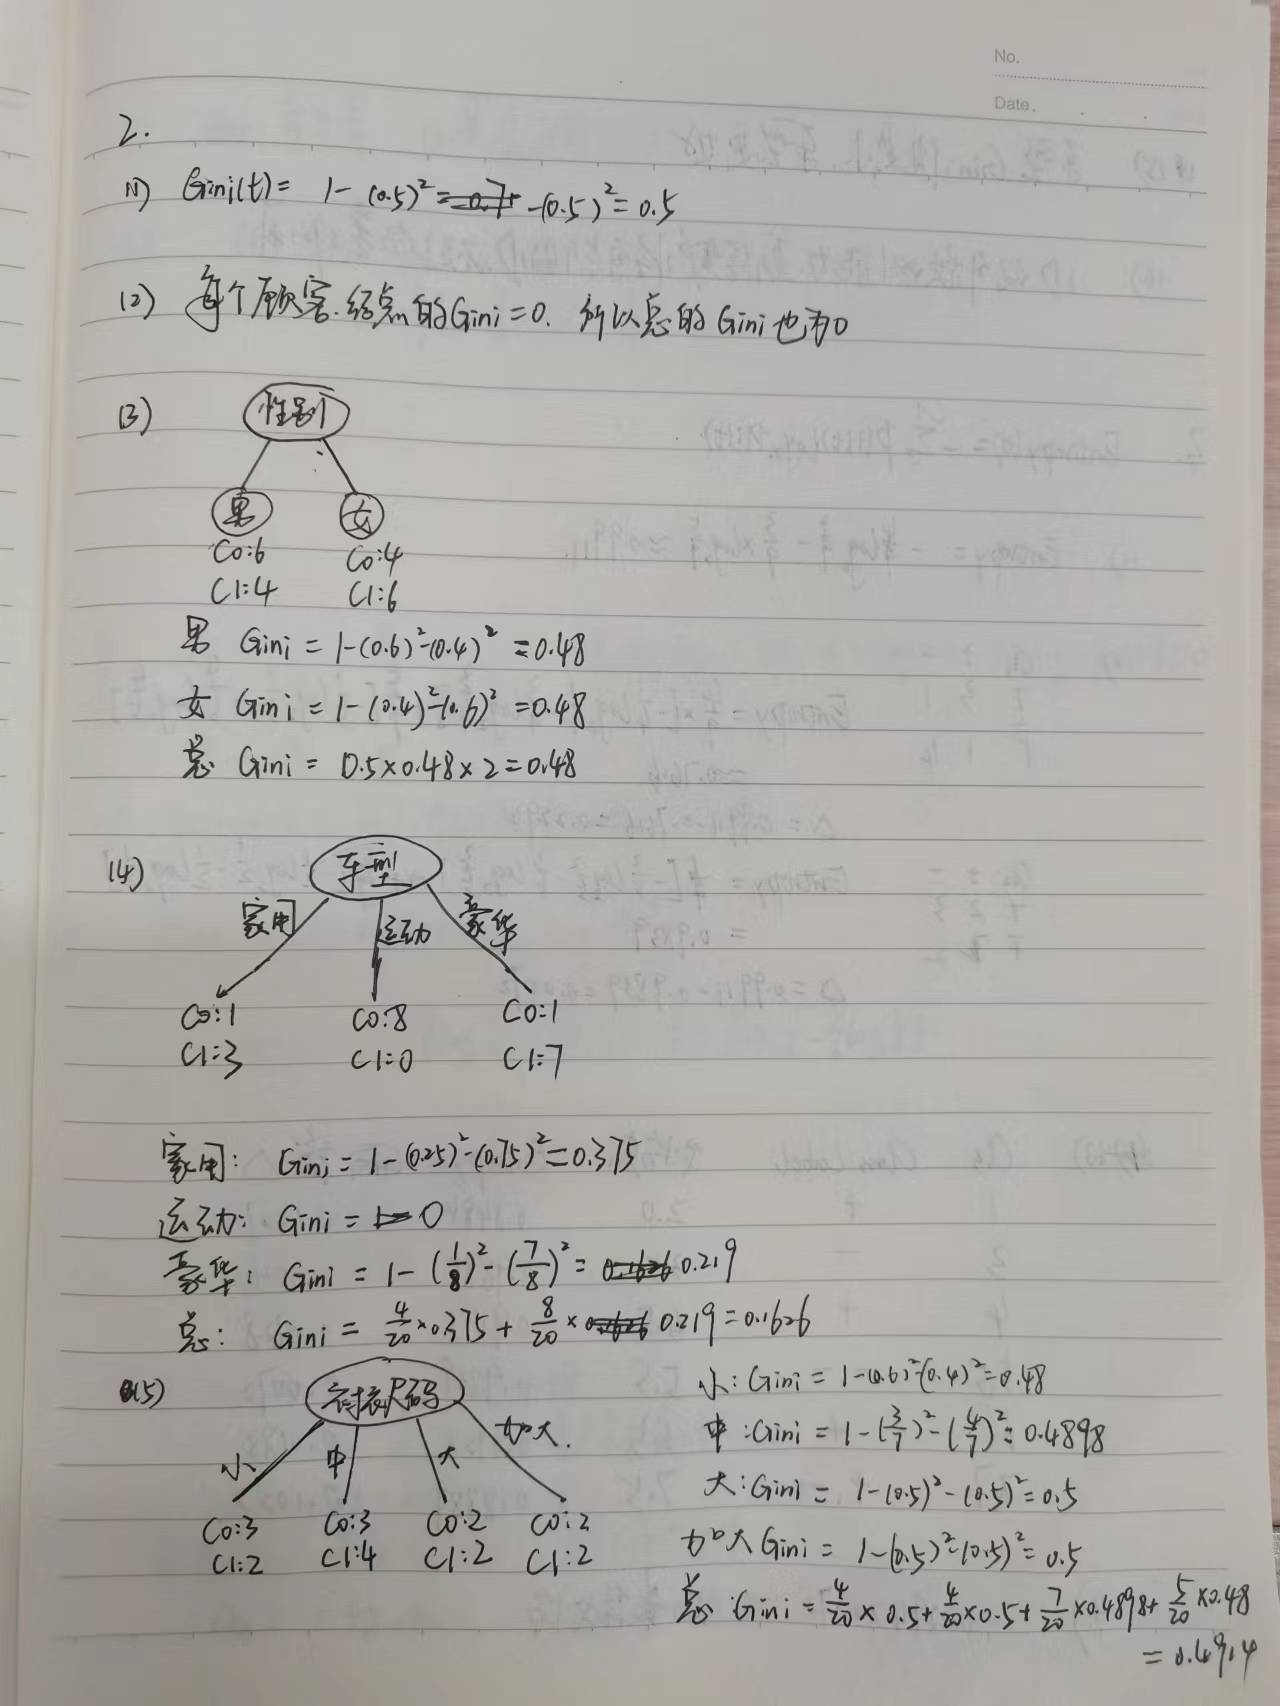 No.
Date.
2.
(1) Gini(t) = 1-(0.5)²-(0.5)²=0.5
(2) 每个顾客结点的Gini=0. 所以总的Gini也为0
(3) 性别
男 女
C0:6 C0:4
C1:4 C1:6
男 Gini = 1-(0.6)²-(0.4)² =0.48
女 Gini = 1-(0.4)²-(0.6)² =0.48
总 Gini = 0.5×0.48×2=0.48
(4) 车型
家用 运动 豪华
C0:1 C0:8 C0:1
C1:3 C1:0 C1:7
家用: Gini = 1-(0.25)²-(0.75)²=0.375
运动: Gini = 0
豪华: Gini = 1-(1/8)²-(7/8)²= 0.219
总: Gini = 4/20×0.375+ 8/20× 0.219=0.1626
(5) 衬衣尺码
小 中 大 加大.
C0:3 C0:3 C0:2 C0:2
C1:2 C1:4 C1:2 C1:2
小: Gini = 1-(0.6)²-(0.4)²=0.48
中: Gini = 1-(3/7)²-(4/7)²=0.4898
大: Gini = 1-(0.5)²-(0.5)²=0.5
加大 Gini = 1-(0.5)²-(0.5)²=0.5
总: Gini = 4/20×0.5+4/20×0.5+7/20×0.4898+5/20×0.48
=0.4914